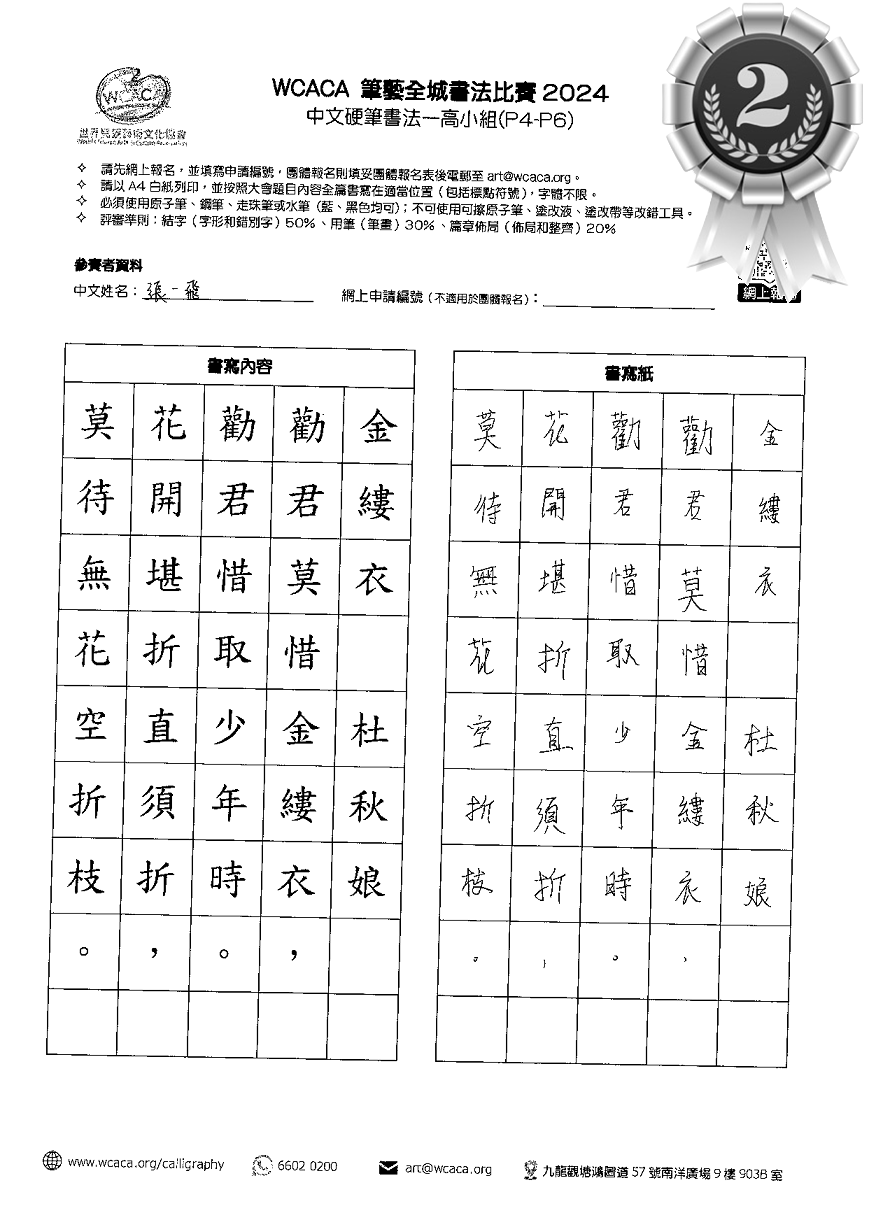 WCACA
世界兒童藝術文化協會
WCACA 筆藝全城書法比賽 2024
中文硬筆書法－高小組(P4-P6)
2
✧ 請先網上報名，並填寫申請編號，團體報名則填妥團體報名表後電郵至 art@wcaca.org。
✧ 請以 A4 白紙列印，並按照大會題目內容全篇書寫在適當位置（包括標點符號），字體不限。
✧ 必須使用原子筆、鋼筆、走珠筆或水筆（藍、黑色均可）；不可使用可擦原子筆、塗改液、塗改帶等改錯工具。
✧ 評審準則：結字（字形和錯別字）50%、用筆（筆畫）30%、篇章佈局（佈局和整齊）20%
網上報
參賽者資料
中文姓名：張一飛
網上申請編號（不適用於團體報名）：
書寫內容
金縷衣
杜秋娘
勸君莫惜金縷衣，
勸君惜取少年時。
花開堪折直須折，
莫待無花空折枝。
書寫紙
金縷衣
杜秋娘
勸君莫惜金縷衣，
勸君惜取少年時。
花開堪折直須折，
莫待無花空折枝。
www.wcaca.org/calligraphy
6602 0200
art@wcaca.org
九龍觀塘鴻圖道 57 號南洋廣場 9 樓 903B 室